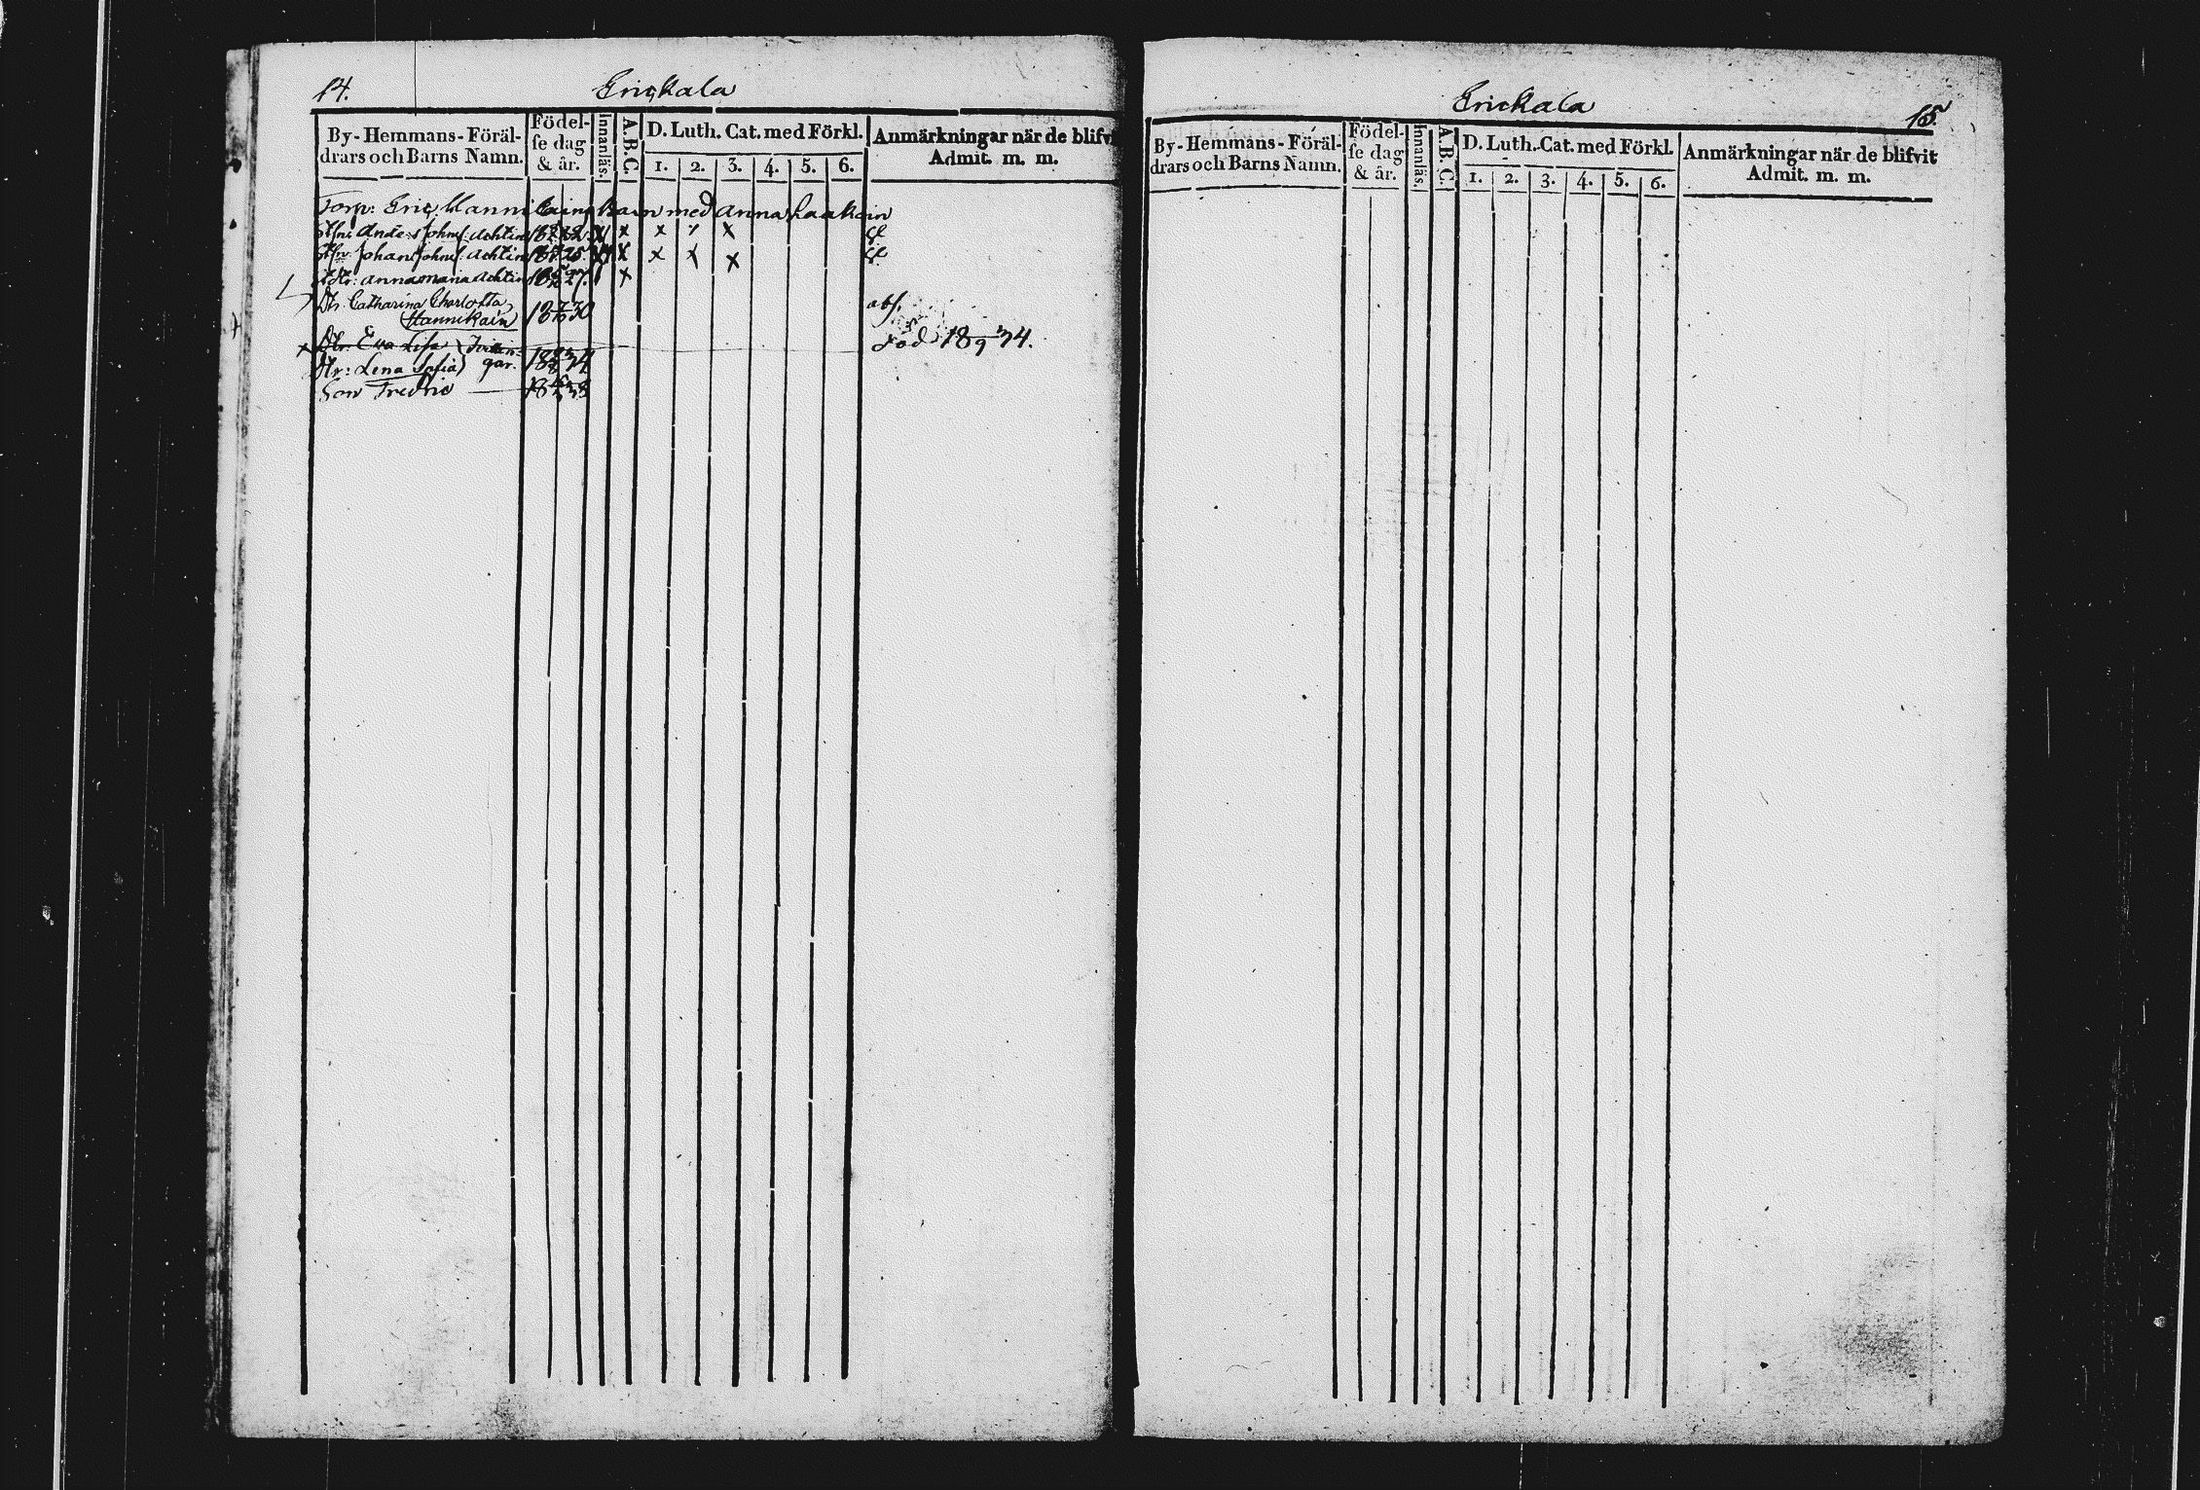 14.
Erickala
By-Hemmans-Föräl-
drars och Barns Namn.
Födel-
se dag
& år.
Innanläs.
A.B.C.
D. Luth. Cat. med Förkl.
1. 2. 3. 4. 5. 6.
Anmärkningar när de blifvi
Admit. m. m.
Torp: Eric Hannikains Barn med Anna Laakoin
Anders Johns: Achtin x x x x
Johan Johns: Achtin x x x x
Anna Maria Achtin 27. x
Dtr. Catharina Charlotta
Hannikain 30
abs.
Dtr. Eva Lisa
Död 18 9 34.
Dtr: Lena Sofia
Son Fredric 38
Erickala
15
By-Hemmans-Föräl-
drars och Barns Namn.
Födel-
se dag
& år.
Innanläs.
A.B.C.
D. Luth. Cat. med Förkl.
1. 2. 3. 4. 5. 6.
Anmärkningar när de blifvit
Admit. m. m.